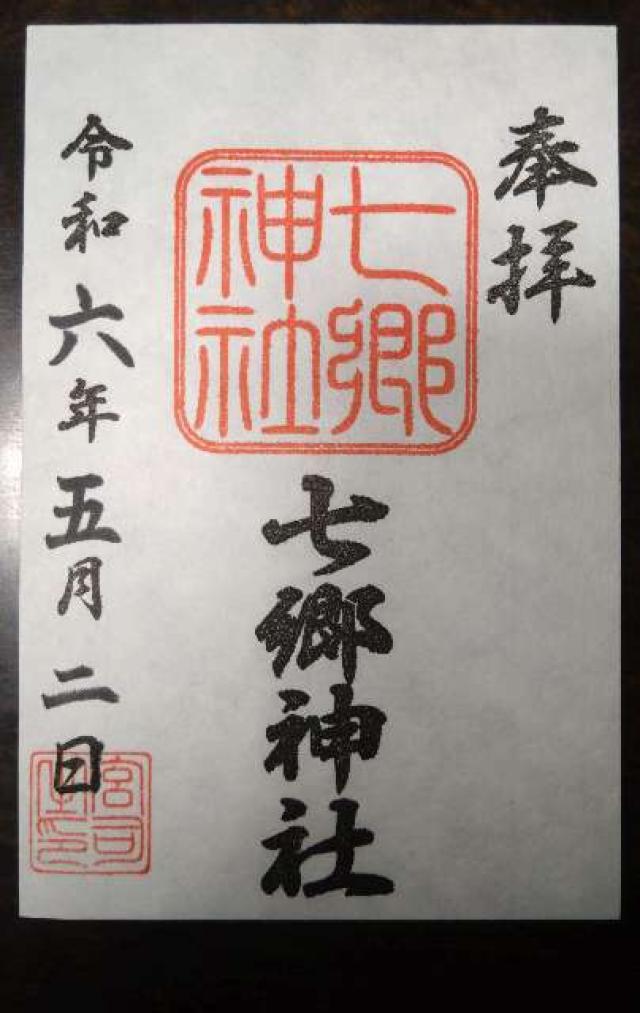 奉拝
七郷
神社
七郷神社
令和六年五月二日
宮司
之印